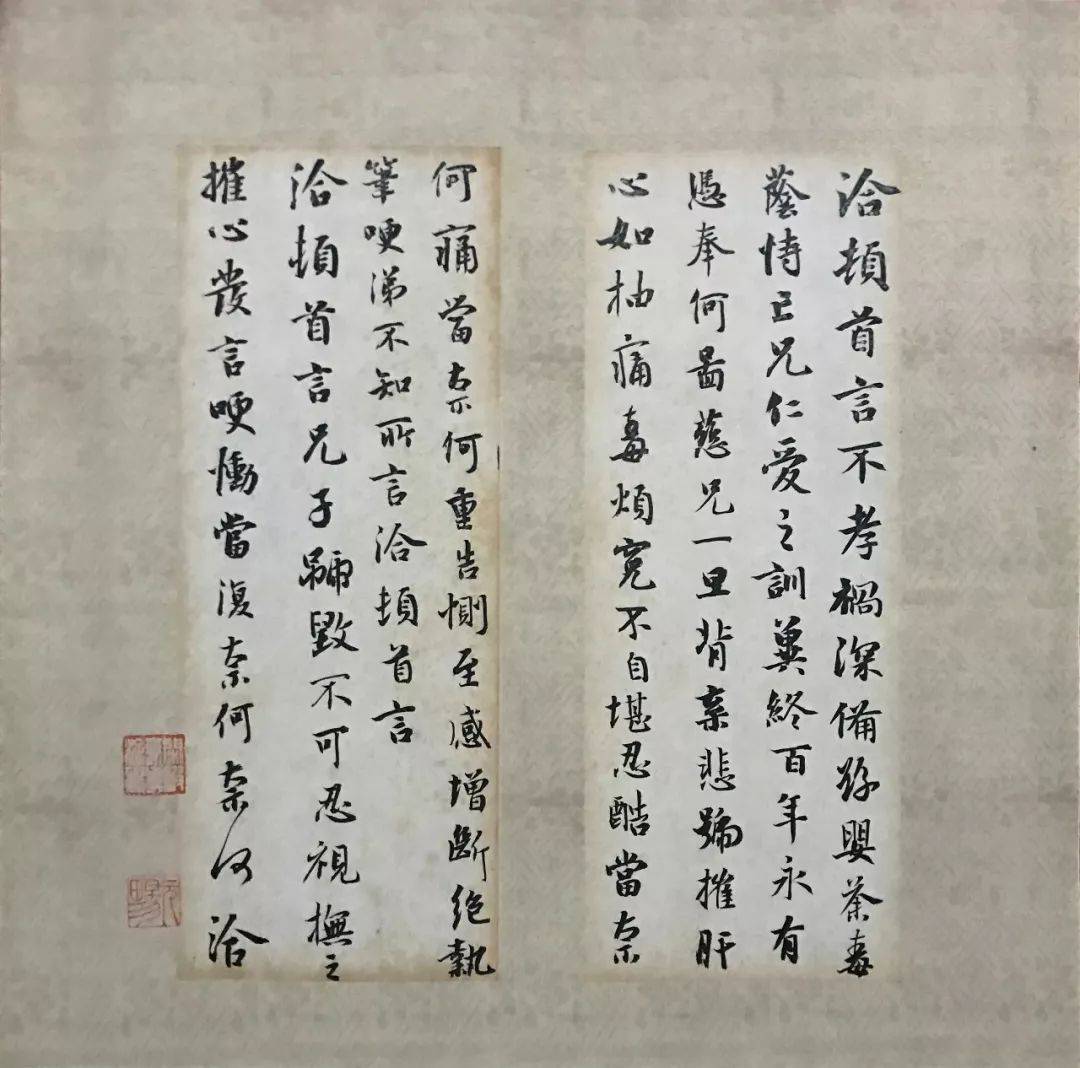 洽頓首言不孝禍深備豫嬰荼毒
蔭恃亡兄仁愛之訓冀終百年永有
憑奉何圖慈兄一旦背棄悲號摧肝
心如抽痛毒煩冤不自堪忍酷當奈
何痛當奈何重告惻至感增斷絕執
筆哽涕不知所言洽頓首言
洽頓首言兄子號毀不可忍視撫之
摧心發言哽慟當復奈何奈何洽